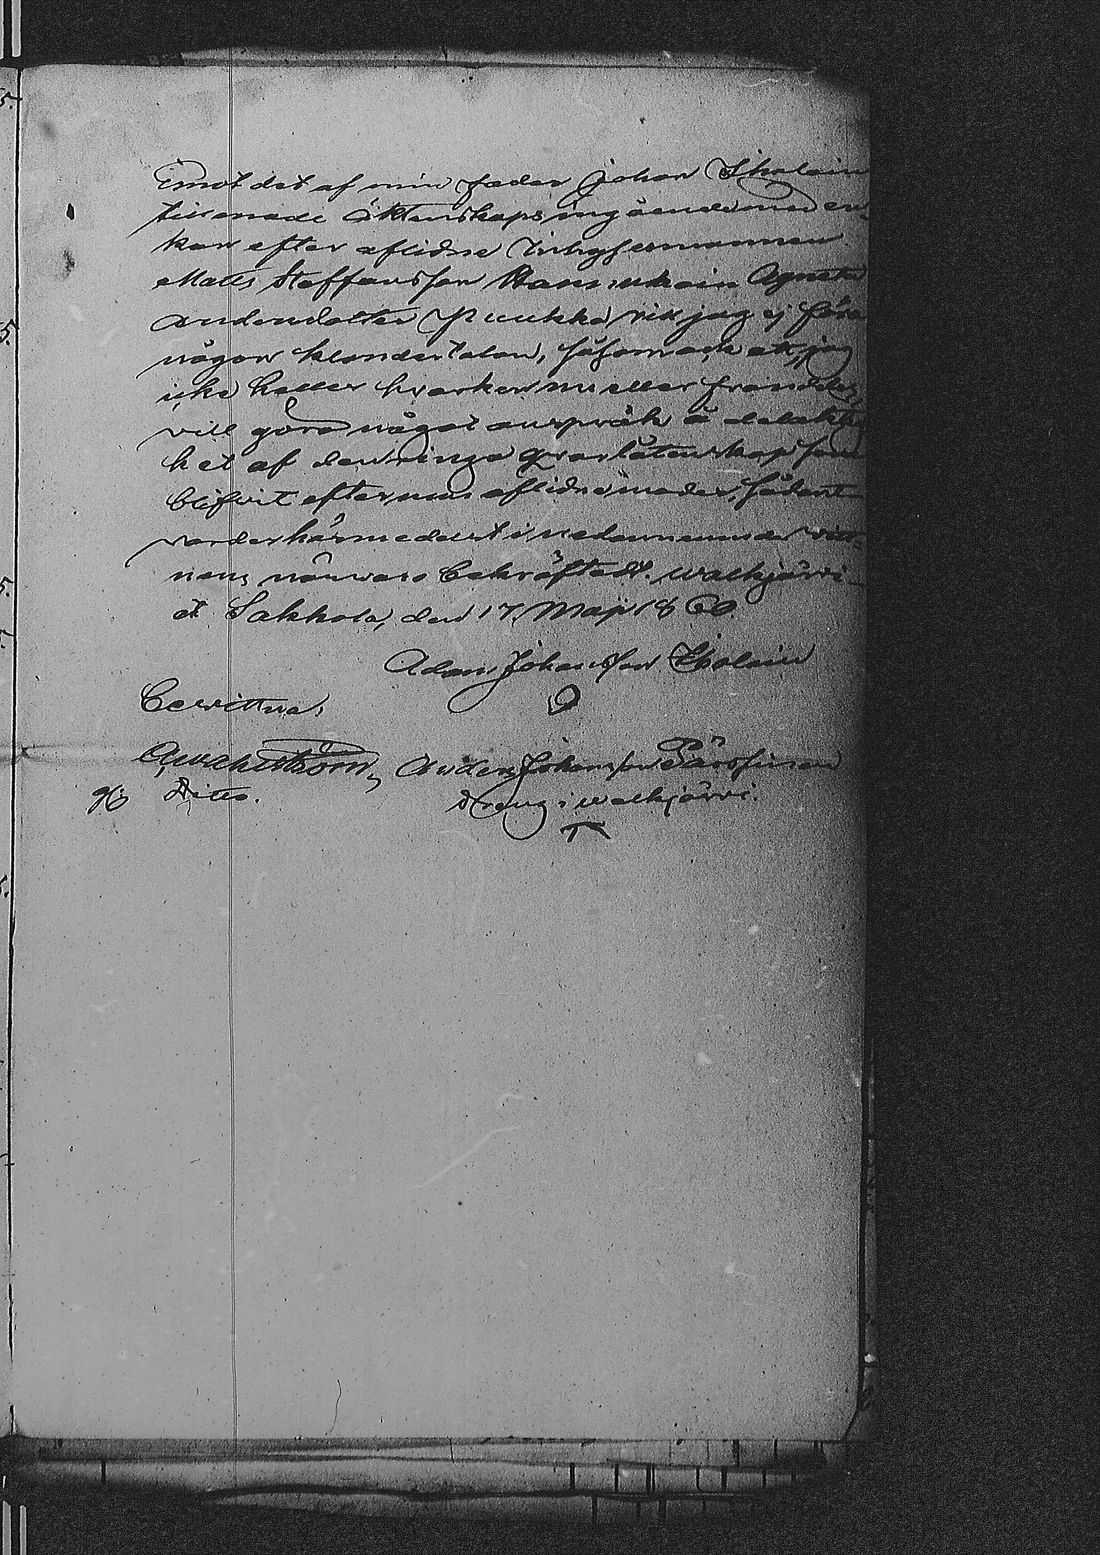 Emot det af min fader Johan Iholain
tillernade äktenskaps ingående med en-
kan efter aflidne Inhysesmannen
Matts Staffansson Hannukain Agneta
Andersdotter Puukka, vill jag ej föra
någon klandertalan, såsom ock att jag
icke heller hvarken nu eller framdeles
vill göra något anspråk å delaktig
het af den ringa qvarlåtenskap som
blifvit efter min aflidne moder, sådant
varder härmedelst i nedannämnde vitt-
nens närvaro bekräftadt. Walkjärvi
et Sakkola, den 17 Maji 1860.
Adam Johansson Iholain
Bevittna,
Anders Johansson Pärssinen
Dräng i Walkjärvi.